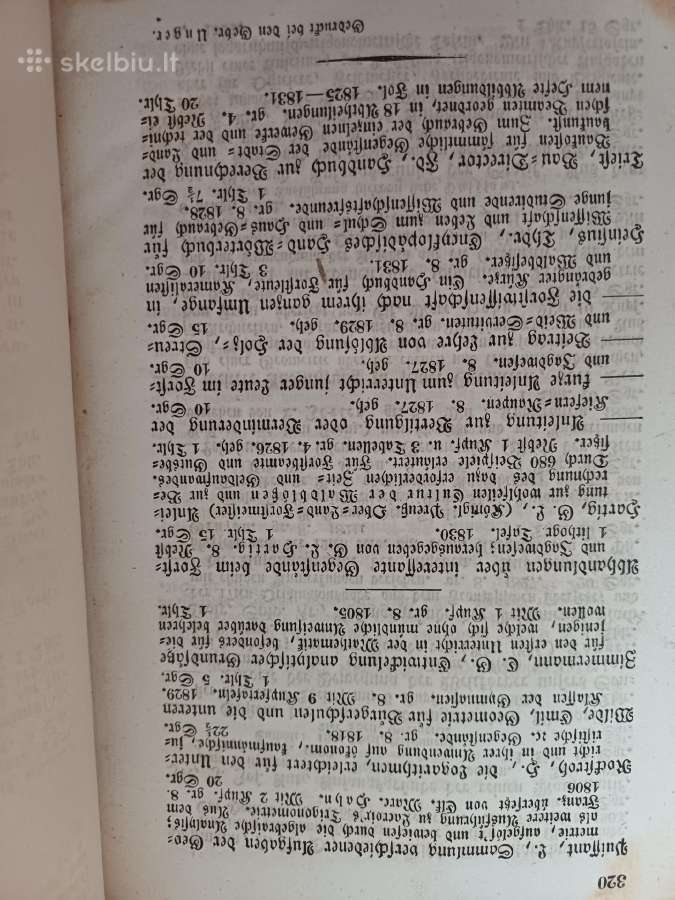 skelbiu.lt
320
Puissant, L., Sammlung verschiedener Aufgaben der Geo=
metrie, aufgelös't und bewiesen durch die algebraische Analysis;
als weitere Ausführung zu Lacroix's Trigonometrie. Aus dem
Franz. übersetzt von Elf. Marc. Hahn. Mit 2 Kupf. gr. 8.
1806 20 Sgr.
Rockstroh, H., die Logarithmen, erleichtert für den Unter=
richt und in ihrer Anwendung auf ökonom., kaufmännische, ju=
ristische ꝛc. Gegenstände. gr. 8. 1818. 22½ Sgr.
Wilde, Emil, Geometrie für Bürgerschulen und die unteren
Klassen der Gymnasien. gr. 8. Mit 9 Kupfertafeln. 1829.
1 Thlr. 5 Sgr.
Zimmermann, C. G., Entwickelung analytischer Grundsätze
für den ersten Unterricht in der Mathematik, besonders für die=
jenigen, welche sich ohne mündliche Anweisung darüber belehren
wollen. Mit 1 Kupf. gr. 8. 1805. 1 Thlr.
Abhandlungen über interessante Gegenstände beim Forst=
und Jagdwesen; herausgegeben von G. L. Hartig. 8. Nebst
1 lithogr. Tafel. 1830. 1 Thlr. 15 Sgr.
Hartig, G. L., (Königl. Preuß. Ober=Land=Forstmeister) Anlei=
tung zur wohlfeilen Cultur der Waldblößen und zur Be=
rechnung des dazu erforderlichen Zeit= und Geldaufwandes.
Durch 680 Beispiele erläutert. Für Forstbeamte und Gutsbe=
sitzer. Nebst 1 Kupf. u. 3 Tabellen. gr. 4. 1826. geh. 1 Thlr.
— Anleitung zur Vertilgung oder Verminderung der
Kiefern=Raupen. 8. 1827. geh. 10 Sgr.
— kurze Anleitung zum Unterricht junger Leute im Forst=
und Jagdwesen. 8. 1827. 10 Sgr.
— Beitrag zur Lehre von Ablösung der Holz=, Streu=
und Weid=Servituten. gr. 8. 1829. geh. 15 Sgr.
— die Forstwissenschaft nach ihrem ganzen Umfange, in
gedrängter Kürze. Ein Handbuch für Forstleute, Kameralisten
und Waldbesitzer. gr. 8. 1831. 3 Thlr. 10 Sgr.
Heinsius, Thdr., Encyklopädisches Hand=Wörterbuch für
Wissenschaft und Leben zum Schul= und Haus=Gebrauch für
junge Studirende und Wissenschaftsfreunde. gr. 8. 1828.
1 Thlr. 7½ Sgr.
Triest, Bau=Director, Fd., Handbuch zur Berechnung der
Baukosten für sämmtliche Gegenstände der Stadt= und Land=
baukunst. Zum Gebrauch der einzelnen Gewerke und der techni=
schen Beamten geordnet, in 18 Abtheilungen. gr. 4. Nebst ei=
nem Hefte Abbildungen in Fol. 1825—1831. 20 Thlr.
Gedruckt bei den Gebr. Unger.